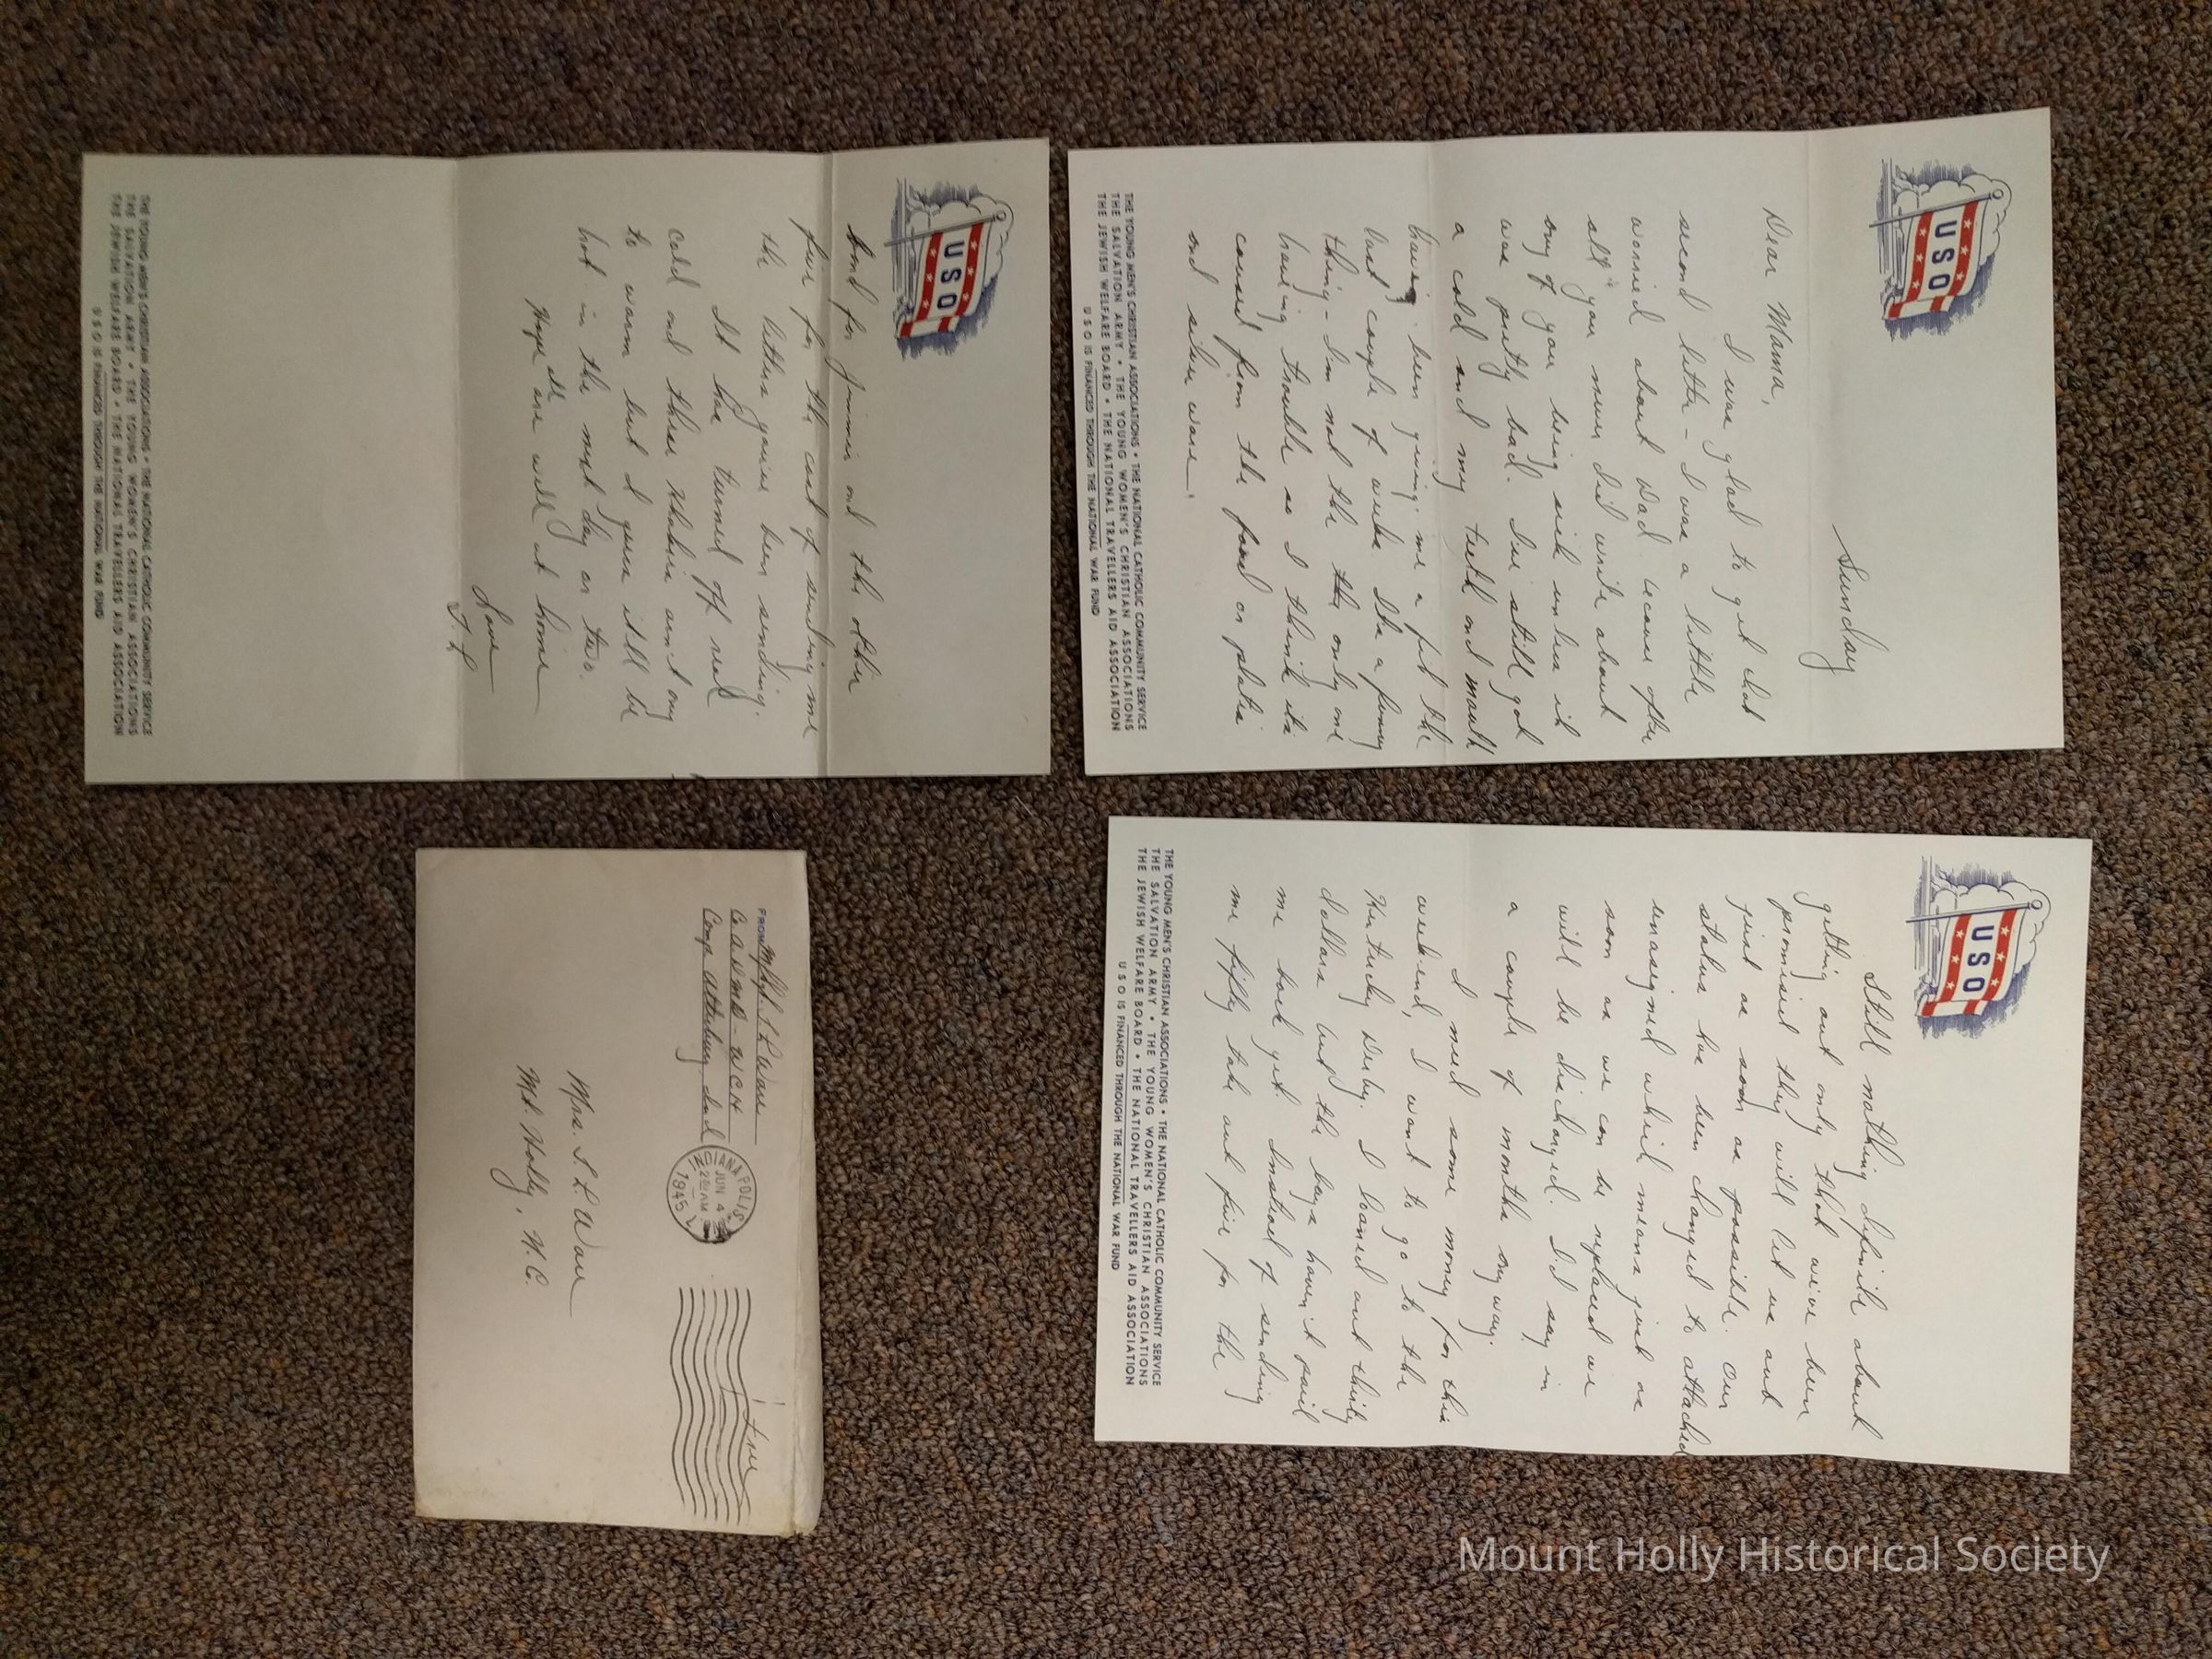 USO
Sunday
Dear Mama,
I was glad to get that
second letter - I was a little
worried about Dad because after
all you never did write about
any of you being sick unless it
was pretty bad. I've still got
a cold and my teeth and mouth
having been giving me a fit the
last couple of weeks. It's a funny
thing - I'm not the the only one
having trouble so I think its
caused from the food or plates
and silver ware.
THE YOUNG MEN'S CHRISTIAN ASSOCIATIONS • THE NATIONAL CATHOLIC COMMUNITY SERVICE
THE SALVATION ARMY • THE YOUNG WOMEN'S CHRISTIAN ASSOCIATIONS
THE JEWISH WELFARE BOARD • THE NATIONAL TRAVELLERS AID ASSOCIATION
USO IS FINANCED THROUGH THE NATIONAL WAR FUND
USO
Still nothing definite about
getting out only that we've been
promised they will let us out
just as soon as possible. Our
status has been changed to attached
unassigned which means just as
soon as we can be replaced we
will be discharged. I'd say in
a couple of months anyway.
I need some money for this
weekend, I want to go to the
Kentucky Derby. I loaned out thirty
dollars but the boys haven't paid
me back yet. Instead of sending
me fifty take out five for the
THE YOUNG MEN'S CHRISTIAN ASSOCIATIONS • THE NATIONAL CATHOLIC COMMUNITY SERVICE
THE SALVATION ARMY • THE YOUNG WOMEN'S CHRISTIAN ASSOCIATIONS
THE JEWISH WELFARE BOARD • THE NATIONAL TRAVELLERS AID ASSOCIATION
USO IS FINANCED THROUGH THE NATIONAL WAR FUND
USO
bond for Jimmie and the other
five for the cost of sending me
the letters you've been sending.
It has turned off real
cold and three blankets ain't any
to warm but I guess it'll be
hot in the next day or two.
Hope all are well at home
Love
J. L.
THE YOUNG MEN'S CHRISTIAN ASSOCIATIONS • THE NATIONAL CATHOLIC COMMUNITY SERVICE
THE SALVATION ARMY • THE YOUNG WOMEN'S CHRISTIAN ASSOCIATIONS
THE JEWISH WELFARE BOARD • THE NATIONAL TRAVELLERS AID ASSOCIATION
USO IS FINANCED THROUGH THE NATIONAL WAR FUND
FROM
WCH
Camp Atterbury Ind
INDIANAPOLIS
JUN 4
2 30 AM
1945
Free
Mrs. S. P. Ware
Mt. Holly, N. C.
Mount Holly Historical Society